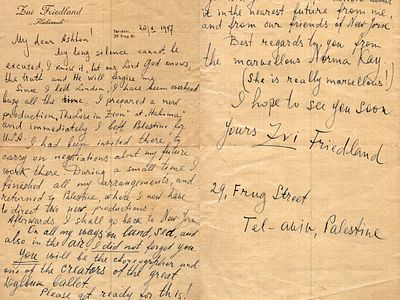 Zvi Friedland
"Habimah"
Tel-Aviv,
29 Frug St.
20/2 1947
My dear Ashton!
My long silence cannot be
excused, I know it, but our Lord God knows
the truth and He will forgive me.
Since I left London, I have been overhead
busy all the time. I prepared a new
production, "The Love in Zion" at "Habima"
and immediately I left Palestine for
USA. I had been invited there, to
carry on negotiations about my future
work there. During a small time I
finished all my arrangements, and
returned to Palestine, where I now have
to direct two new productions.
Afterwards I shall go back to New York.
On all my ways on land, sea, and
also in the air, I did not forget you.
You will be the choreographer and
one of the creators of the great
Dybbuk ballet.
Please get ready for this!
it in the nearest future from me,
and from our friends of New York
Best regards to you from
the marvellous Norma Kay.
(She is really marvellous!)
I hope to see you soon
Yours Zvi Friedland
29, Frug Street
Tel-Aviv, Palestine